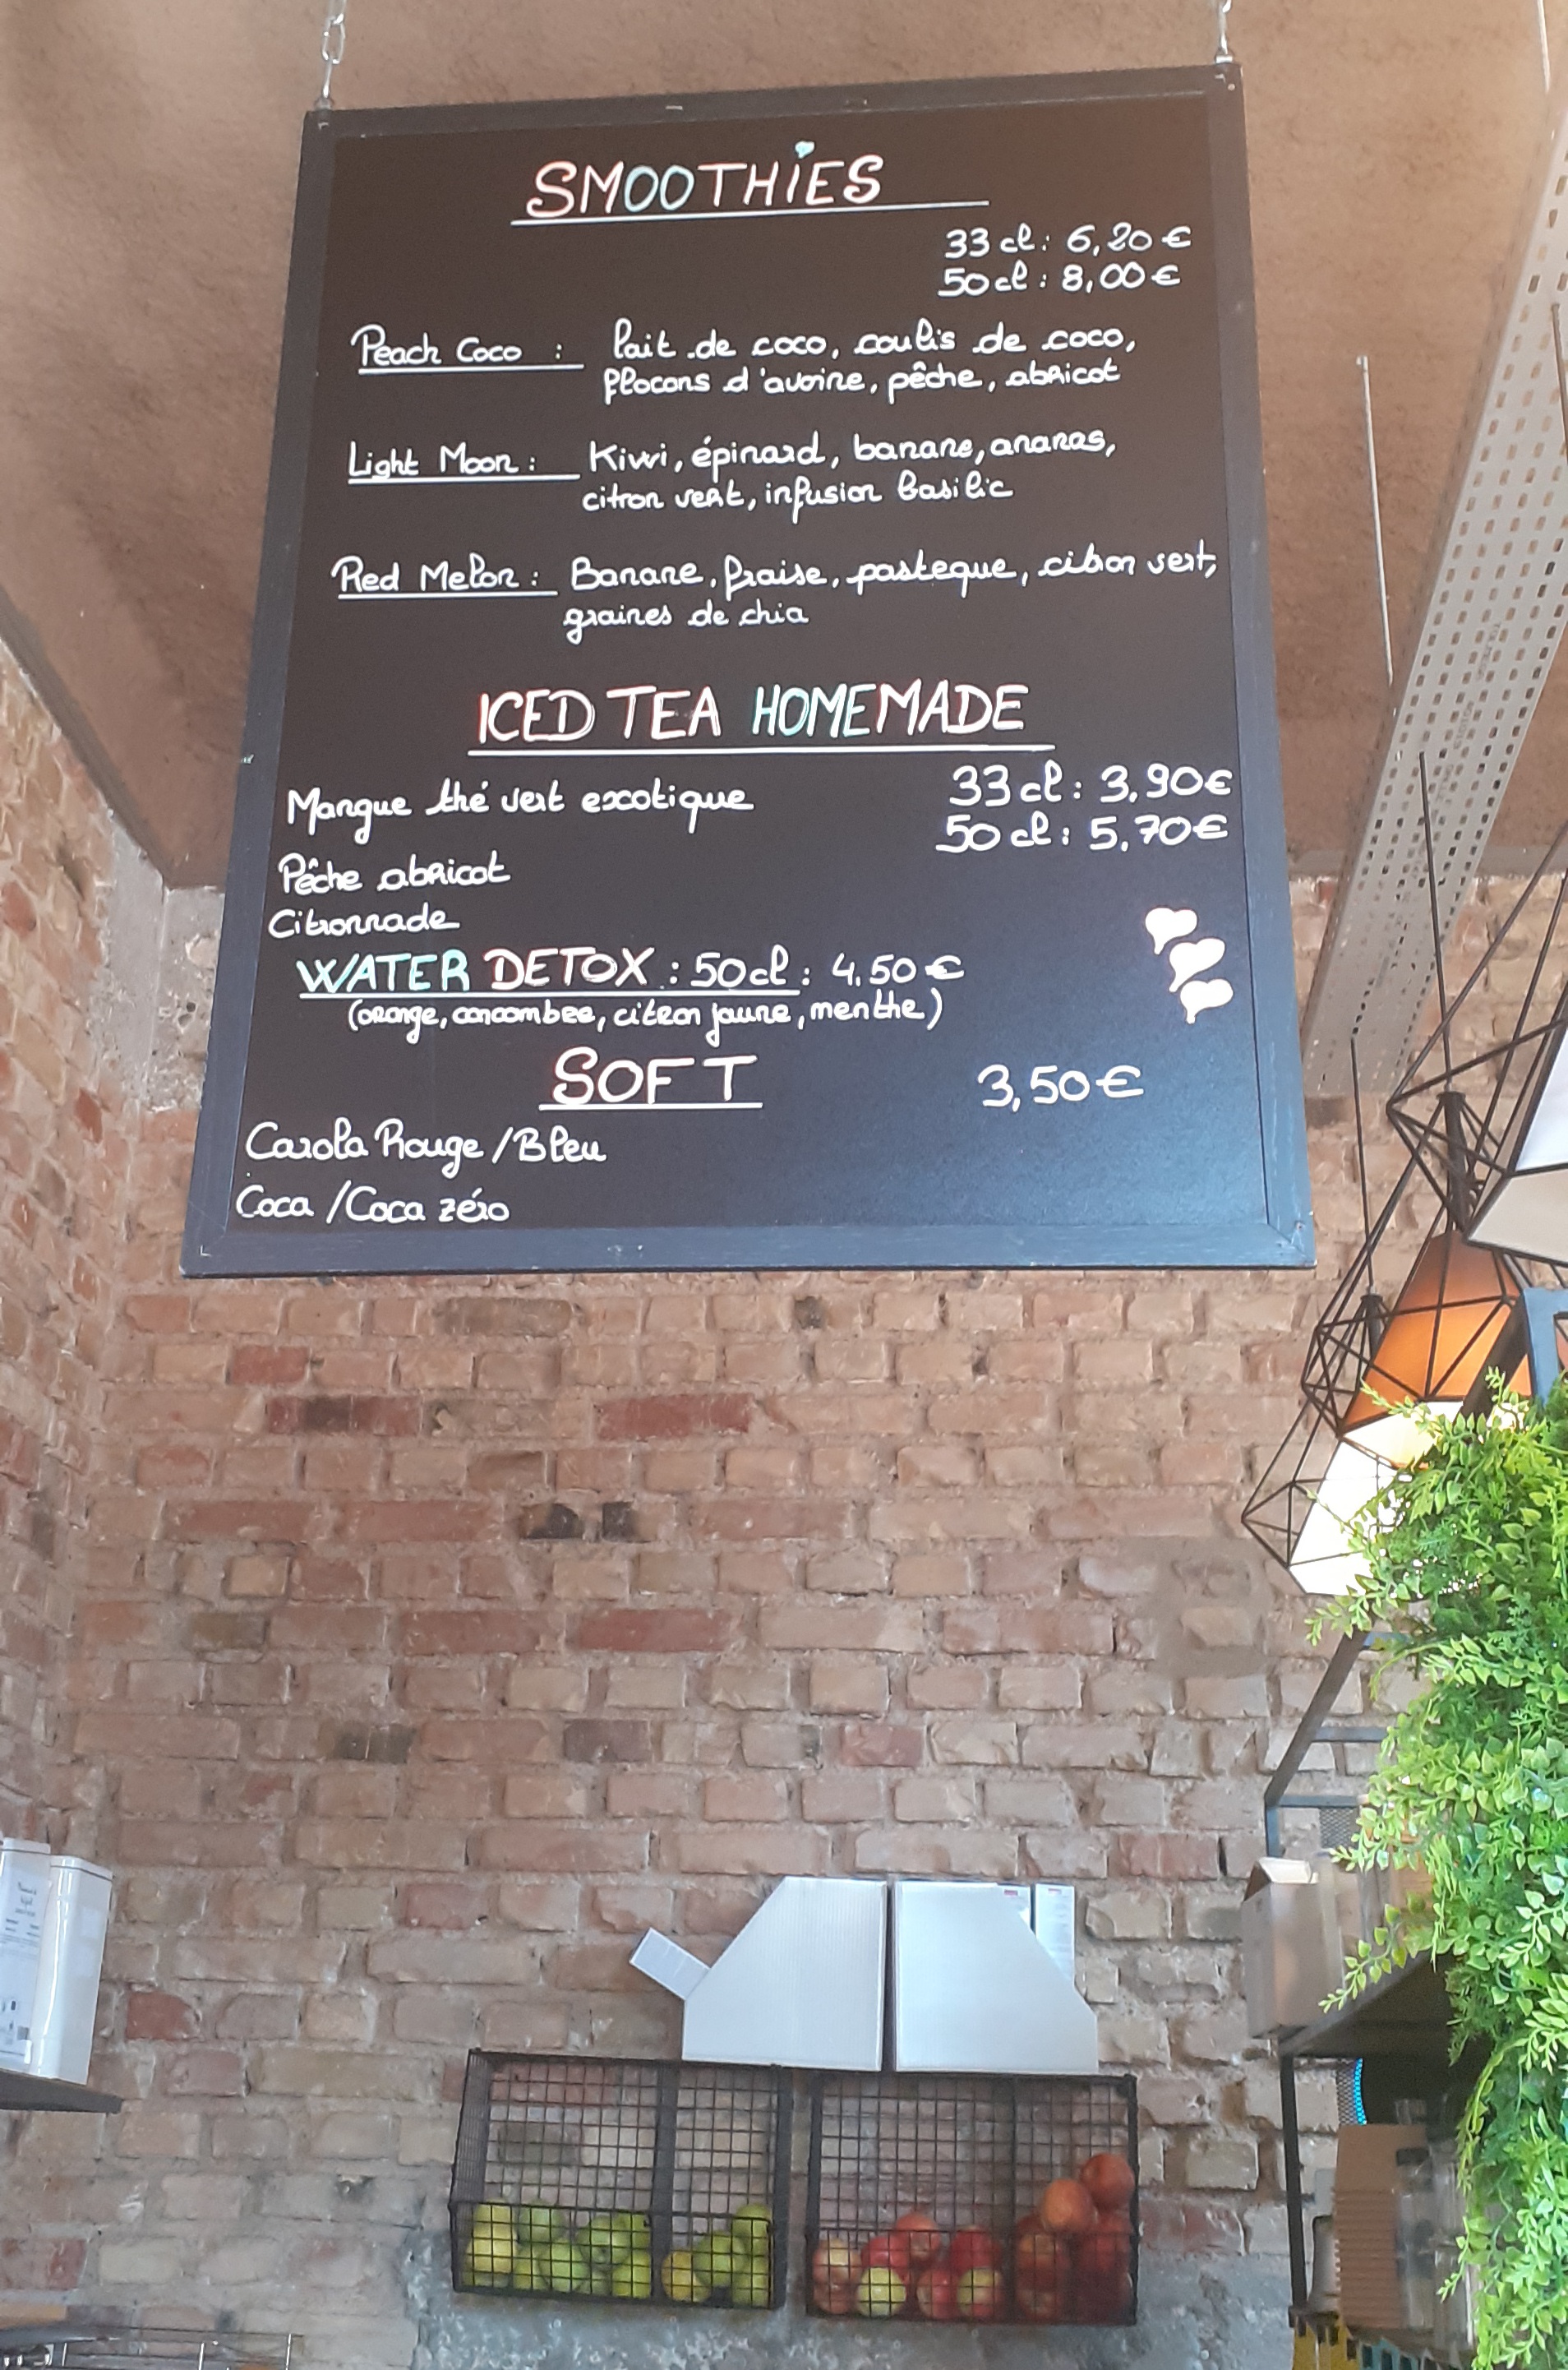 SMOOTHiES
33 cl : 6,20 €
50 cl : 8,00 €
Peach Coco : lait de coco, coulis de coco,
flocons d'avoine, pêche, abricot
Light Moon : Kiwi, épinard, banane, ananas,
citron vert, infusion basilic
Red Melon : Banane, fraise, pasteque, citron vert,
graines de chia
ICED TEA HOMEMADE
Mangue thé vert exotique 33 cl : 3,90€
50 cl : 5,70€
Pêche abricot
Citronnade
WATER DETOX : 50cl : 4,50 €
(orange, concombre, citron jaune, menthe)
SOFT 3,50€
Carola Rouge /Bleu
Coca /Coca zéro